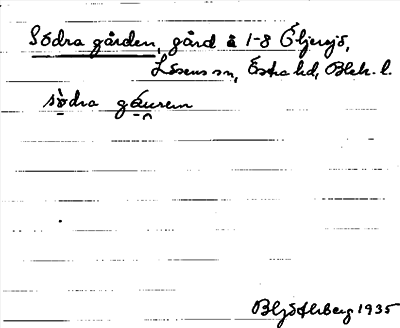 Södra gården, gård å 1-8 Öljersjö,
Lösens sn, Östra hd, Blek. l.
södra gåuren
1935